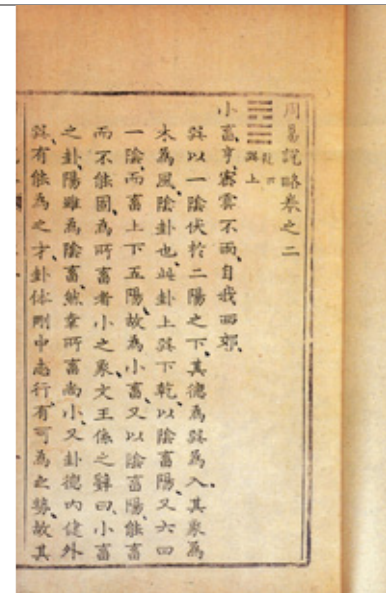 周易説略卷之二
乾下
巽上
小畜亨密雲不雨自我西郊
巽以一陰伏於二陽之下其德為巽為入其象為
木為風陰卦也此卦上巽下乾以陰畜陽又六四
一陰而畜上下五陽故為小畜又以陰畜陽能畜
而不能固為所畜者小之象文王係之辭曰小畜
之卦陽雖為陰畜然幸所畜尚小又卦德內健外
巽有能為之才卦体剛中志行有可為之勢故其